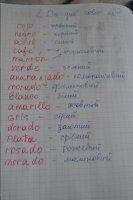 ¿De qué color es?
rojo - червоний
negro - чорний
azul - синій
café - коричневий
marrón
verde - зелений
anaranjado - помаранчевий
morado - фіолетовий
blanco - білий
amarillo - жовтий
gris - сірий
dorado - золотий
plata - срібний
rosado - рожевий
morado -